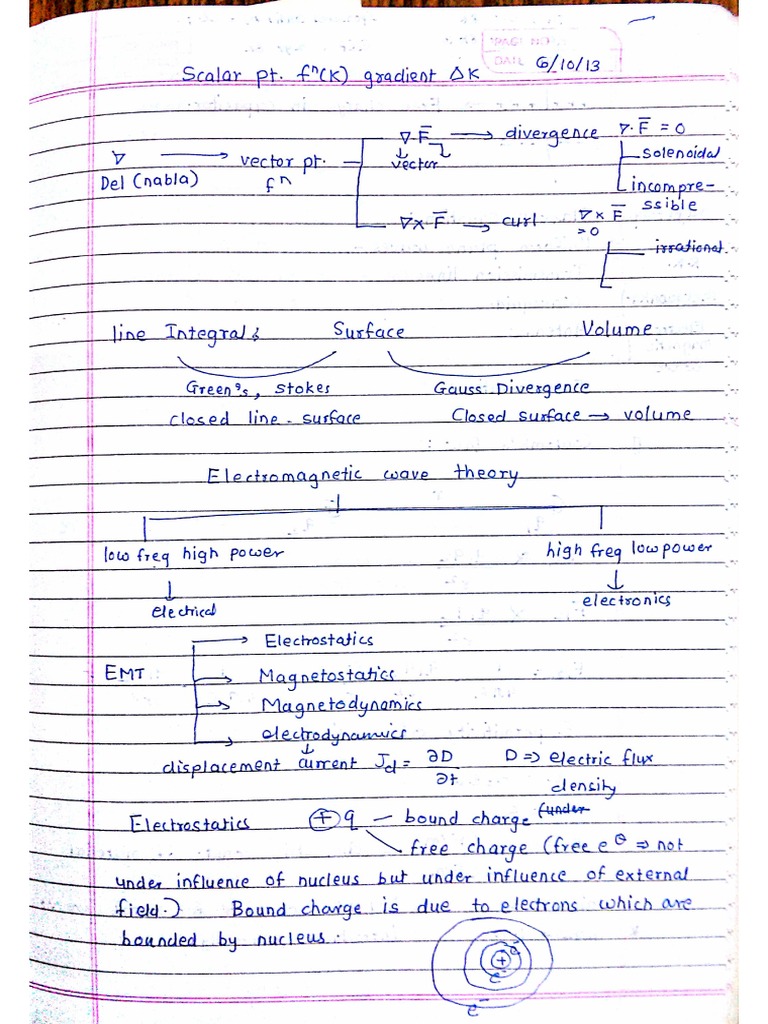 PAGE NO
DATE 6/10/13
Scalar pt. fⁿ(K) gradient ΔK
∇ → vector pt. fⁿ
Del (nabla)
∇·F̄ → divergence ∇·F̄ = 0
vector
solenoidal
incompre-
ssible
∇×F̄ → curl ∇×F̄ = 0
irrational
line Integral; Surface Volume
Green's, stokes Gauss Divergence
closed line - surface Closed surface → volume
Electromagnetic wave theory
low freq high power high freq low power
electrical electronics
EMT
→ Electrostatics
→ Magnetostatics
→ Magnetodynamics
→ electrodynamics
displacement current J_d = ∂D/∂t D ⇒ electric flux
density
Electrostatics ⊕ q — bound charge (under
free charge (free e⊖ ⇒ not
under influence of nucleus but under influence of external
field.) Bound charge is due to electrons which are
bounded by nucleus.
+ e⁻ e⁻
e⁻